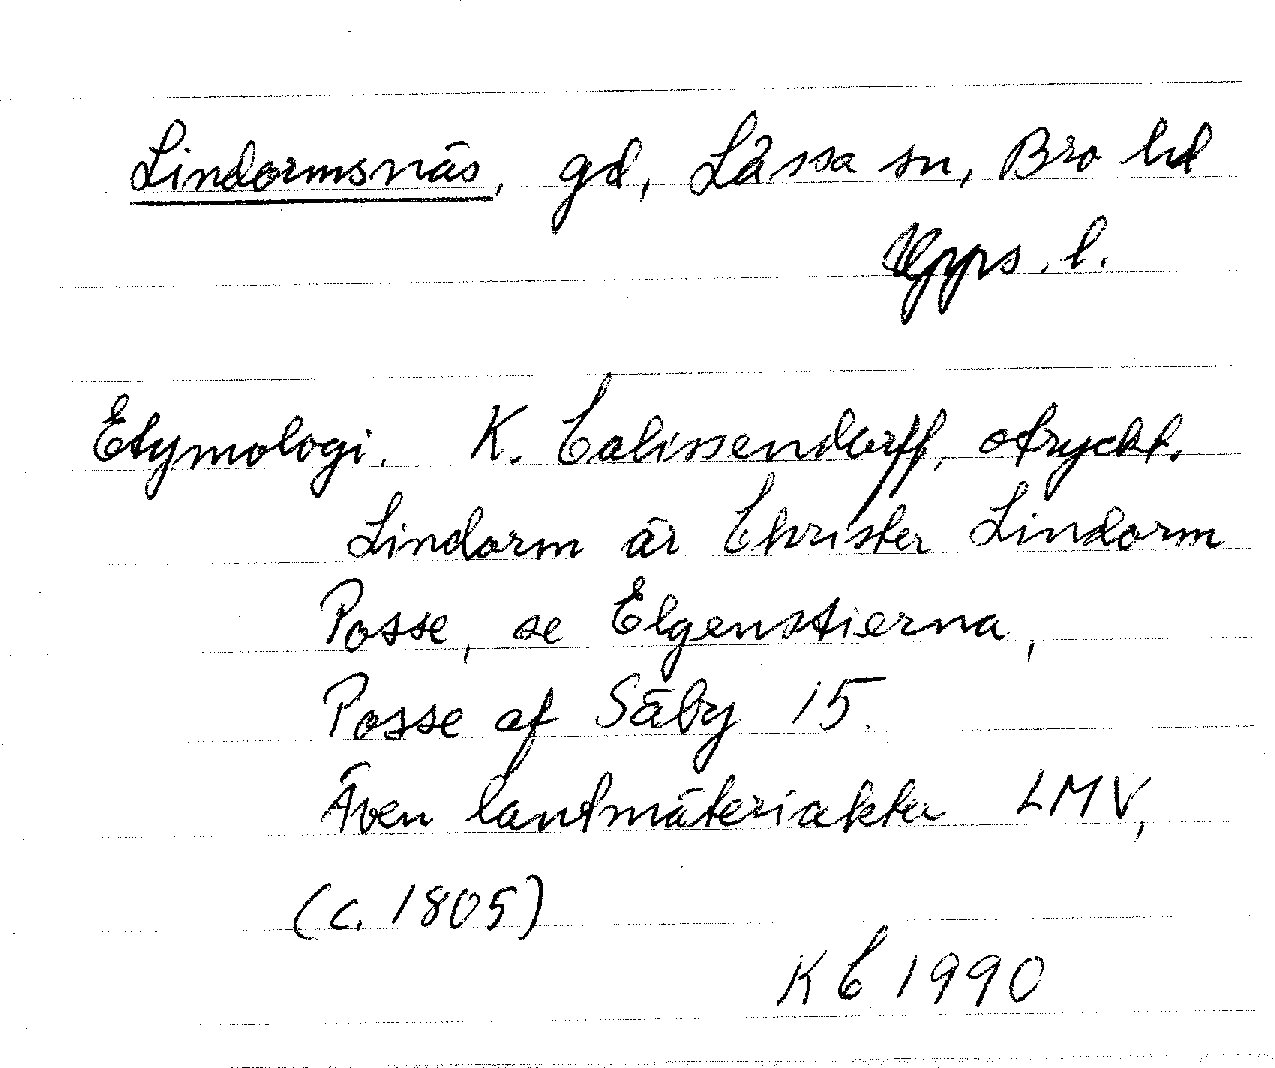 Lindormsnäs, gd, Låssa sn, Bro hd
Upps. l.
Etymologi. K. Calissendorff, otryckt.
Lindorm är Christer Lindorm
Posse, se Elgenstierna,
Posse af Säby 15.
Även lantmäteriakter LMV,
(c. 1805)
KC 1990